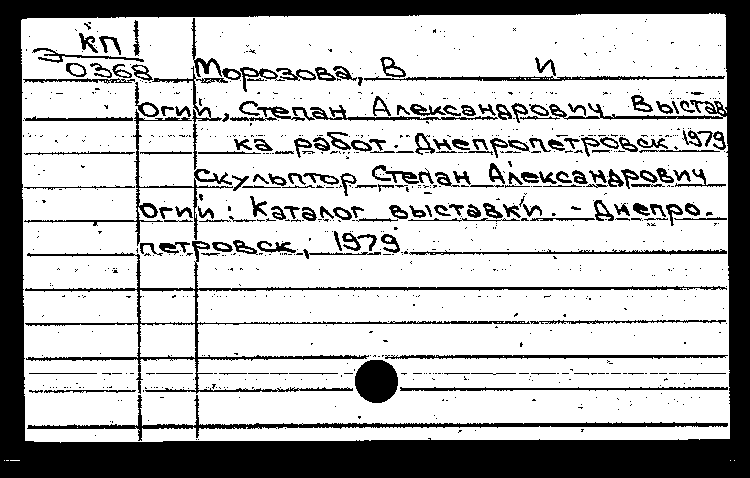 КП
Э 0368
Морозова, В И
Огий, Степан Александрович. Выстав
ка работ. Днепропетровск. 1979
Скульптор Степан Александрович
Огий: Каталог выставки. - Днепро-
петровск, 1979